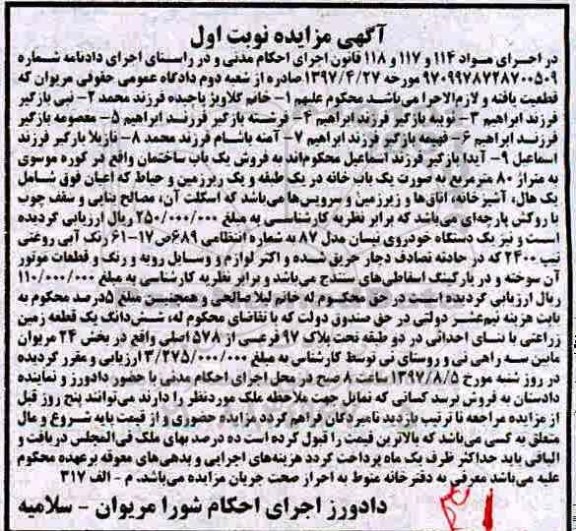 آگهی مزایده نوبت اول
در اجرای مواد ۱۱۴ و ۱۱۷ و ۱۱۸ قانون اجرای احکام مدنی و در راستای اجرای دادنامه شماره
۹۷۰۹۹۷۸۷۲۸۷۰۰۵۰۹ مورخه ۱۳۹۷/۴/۲۷ صادره از شعبه دوم دادگاه عمومی حقوقی مریوان که
قطعیت یافته و لازم‌الاجرا می‌باشد محکوم علیهم ۱- خانم گلاویژ پاچیده فرزند محمد ۲- نبی بازگیر
فرزند ابراهیم ۳- توبیه بازگیر فرزند ابراهیم ۴- فرشته بازگیر فرزند ابراهیم ۵- معصومه بازگیر
فرزند ابراهیم ۶- فهیمه بازگیر فرزند ابراهیم ۷- آمنه باشام فرزند محمد ۸- نازیلا بازگیر فرزند
اسماعیل ۹- آیدا بازگیر فرزند اسماعیل محکوم‌اند به فروش یک باب ساختمان واقع در کوره موسوی
به متراژ ۸۰ مترمربع به صورت یک باب خانه در یک طبقه و یک زیرزمین و حیاط که اعیان فوق شامل
یک هال، آشپزخانه، اتاق‌ها و زیرزمین و سرویس‌ها می‌باشد که اسکلت آن، مصالح بنایی و سقف چوب
با روکش پارچه‌ای می‌باشد که برابر نظریه کارشناسی به مبلغ ۲۵۰/۰۰۰/۰۰۰ ریال ارزیابی گردیده
است و نیز یک دستگاه خودروی نیسان مدل ۸۷ به شماره انتظامی ۶۸۹ص۱۷-۶۱ رنگ آبی روغنی
تیپ ۲۴۰۰ که در حادثه تصادف دچار حریق شده و اکثر لوازم و وسایل رویه و رنگ و قطعات موتور
آن سوخته و در پارکینگ اسقاطی‌های سنندج می‌باشد و برابر نظریه کارشناسی به مبلغ ۱۱۰/۰۰۰/۰۰۰
ریال ارزیابی گردیده است در حق محکوم له خانم لیلا صالحی و همچنین مبلغ ۵درصد محکوم به
بابت هزینه نیم‌عشر دولتی در حق صندوق دولت که با تقاضای محکوم له، شش‌دانگ یک قطعه زمین
زراعتی با بنای احداثی در دو طبقه تحت پلاک ۹۷ فرعی از ۵۷۸ اصلی واقع در بخش ۲۴ مریوان
مابین سه راهی نی و روستای نی توسط کارشناس به مبلغ ۳/۲۷۵/۰۰۰/۰۰۰ ارزیابی و مقرر گردیده
در روز شنبه مورخ ۱۳۹۷/۸/۵ ساعت ۸ صبح در محل اجرای احکام مدنی با حضور دادورز و نماینده
دادستان به فروش برسد کسانی که تمایل جهت ملاحظه ملک موردنظر را دارند می‌توانند پنج روز قبل
از مزایده مراجعه تا ترتیب بازدید نامبردگان فراهم گردد مزایده حضوری و از قیمت پایه شروع و مال
متعلق به کسی می‌باشد که بالاترین قیمت را قبول کرده است ده درصد بهای ملک فی‌المجلس دریافت و
الباقی باید حداکثر ظرف یک ماه پرداخت گردد هزینه‌های اجرایی و بدهی‌های معوقه برعهده محکوم
علیه می‌باشد معرفی به دفترخانه منوط به احراز صحت جریان مزایده می‌باشد. م - الف ۳۱۷
دادورز اجرای احکام شورا مریوان - سلامیه